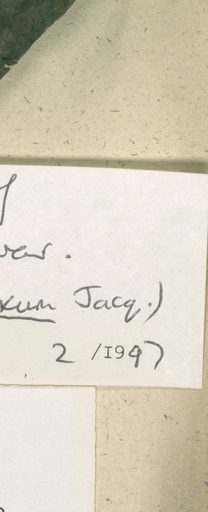 var.
kum Jacq.)
2 /1997